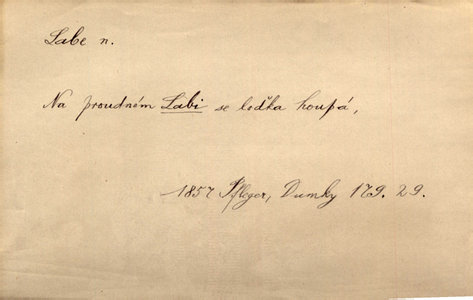 Labe n.
Na proudném Labi se loďka houpá,
1857 Pfleger, Dumky 179. 29.